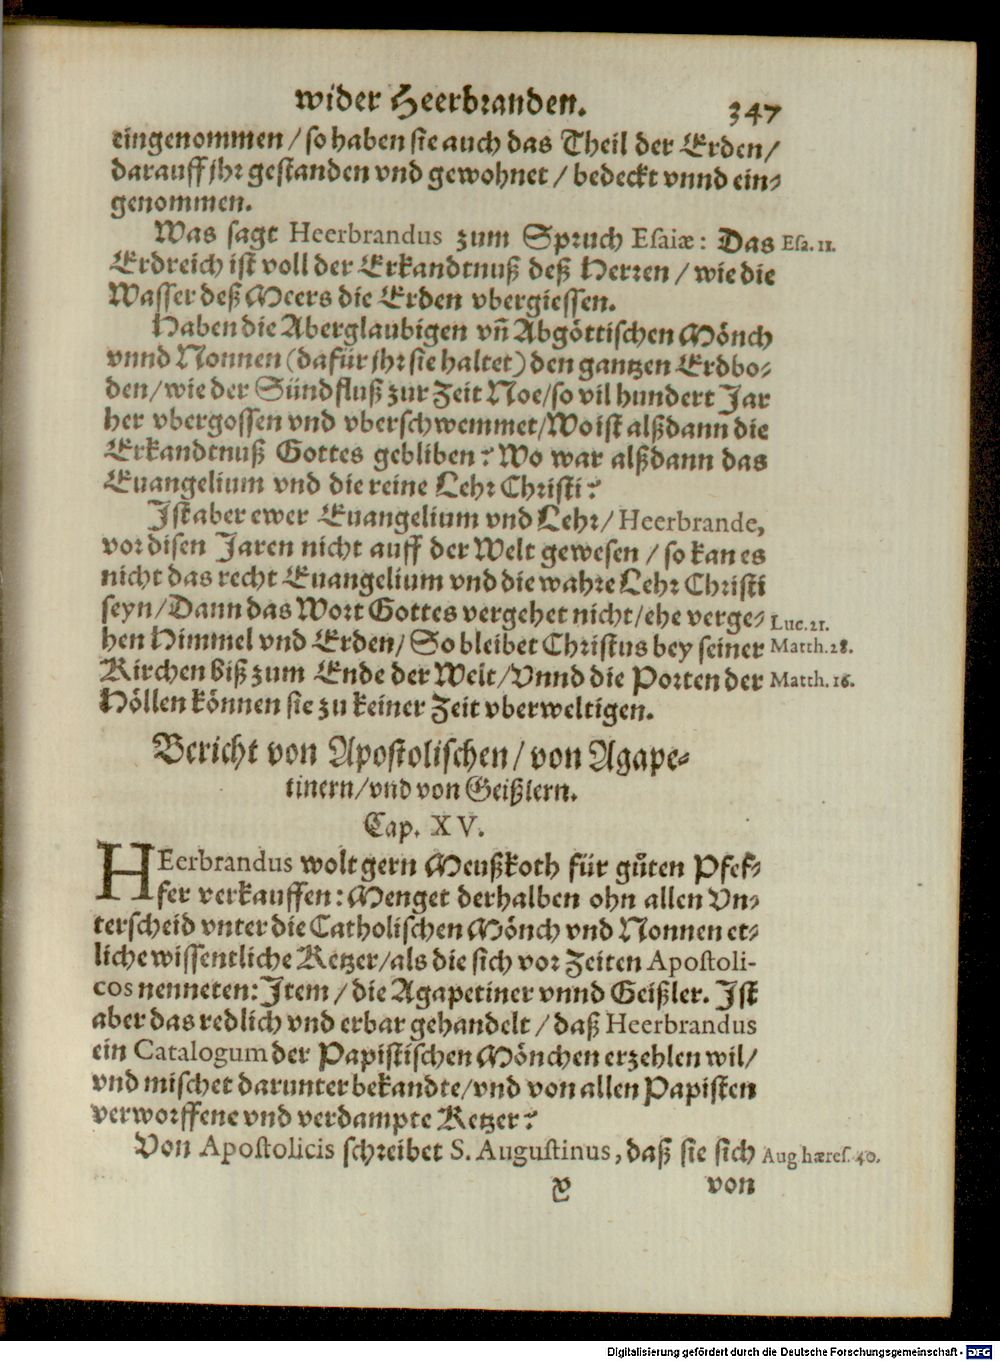 wider Heerbranden. 347
eingenommen / so haben sie auch das Theil der Erden /
darauff jhr gestanden vnd gewohnet / bedeckt vnnd ein-
genommen.
Was sagt Heerbrandus zum Spruch Esaiæ: Das Esa. 11.
Erdreich ist voll der Erkandtnuß deß Herren / wie die
Wasser deß Meers die Erden vbergiessen.
Haben die Aberglaubigen vñ Abgöttischen Mönch
vnnd Nonnen (dafür jhr sie haltet) den gantzen Erdbo-
den / wie der Sündfluß zur Zeit Noe / so vil hundert Jar
her vbergossen vnd vberschwemmet / Wo ist alßdann die
Erkandtnuß Gottes gebliben? Wo war alßdann das
Euangelium vnd die reine Lehr Christi?
Ist aber ewer Euangelium vnd Lehr / Heerbrande,
vor disen Jaren nicht auff der Welt gewesen / so kan es
nicht das recht Euangelium vnd die wahre Lehr Christi
seyn / Dann das Wort Gottes vergehet nicht / ehe verge- Luc. 21.
hen Himmel vnd Erden / So bleibet Christus bey seiner Matth. 28.
Kirchen biß zum Ende der Welt / Vnnd die Porten der Matth. 16.
Höllen können sie zu keiner Zeit vberweltigen.
Bericht von Apostolischen / von Agape-
tinern / vnd von Geißlern.
Cap. XV.
HEerbrandus wolt gern Meußkoth für gůten Pfef-
fer verkauffen: Menget derhalben ohn allen Vn-
terscheid vnter die Catholischen Mönch vnd Nonnen et-
liche wissentliche Ketzer / als die sich vor Zeiten Apostoli-
cos nenneten: Item / die Agapetiner vnnd Geißler. Ist
aber das redlich vnd erbar gehandelt / daß Heerbrandus
ein Catalogum der Papistischen Mönchen erzehlen wil /
vnd mischet darunter bekandte / vnd von allen Papisten
verworffene vnd verdampte Ketzer?
Von Apostolicis schreibet S. Augustinus, daß sie sich Aug hæres. 40.
y von
Digitalisierung gefördert durch die Deutsche Forschungsgemeinschaft - DFG